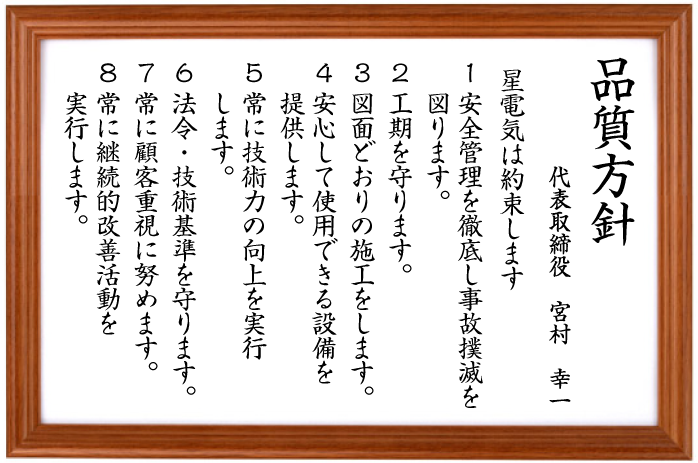 品質方針
代表取締役　宮村　幸一
星電気は約束します
１安全管理を徹底し事故撲滅を
図ります。
２工期を守ります。
３図面どおりの施工をします。
４安心して使用できる設備を
提供します。
５常に技術力の向上を実行
します。
６法令・技術基準を守ります。
７常に顧客重視に努めます。
８常に継続的改善活動を
実行します。